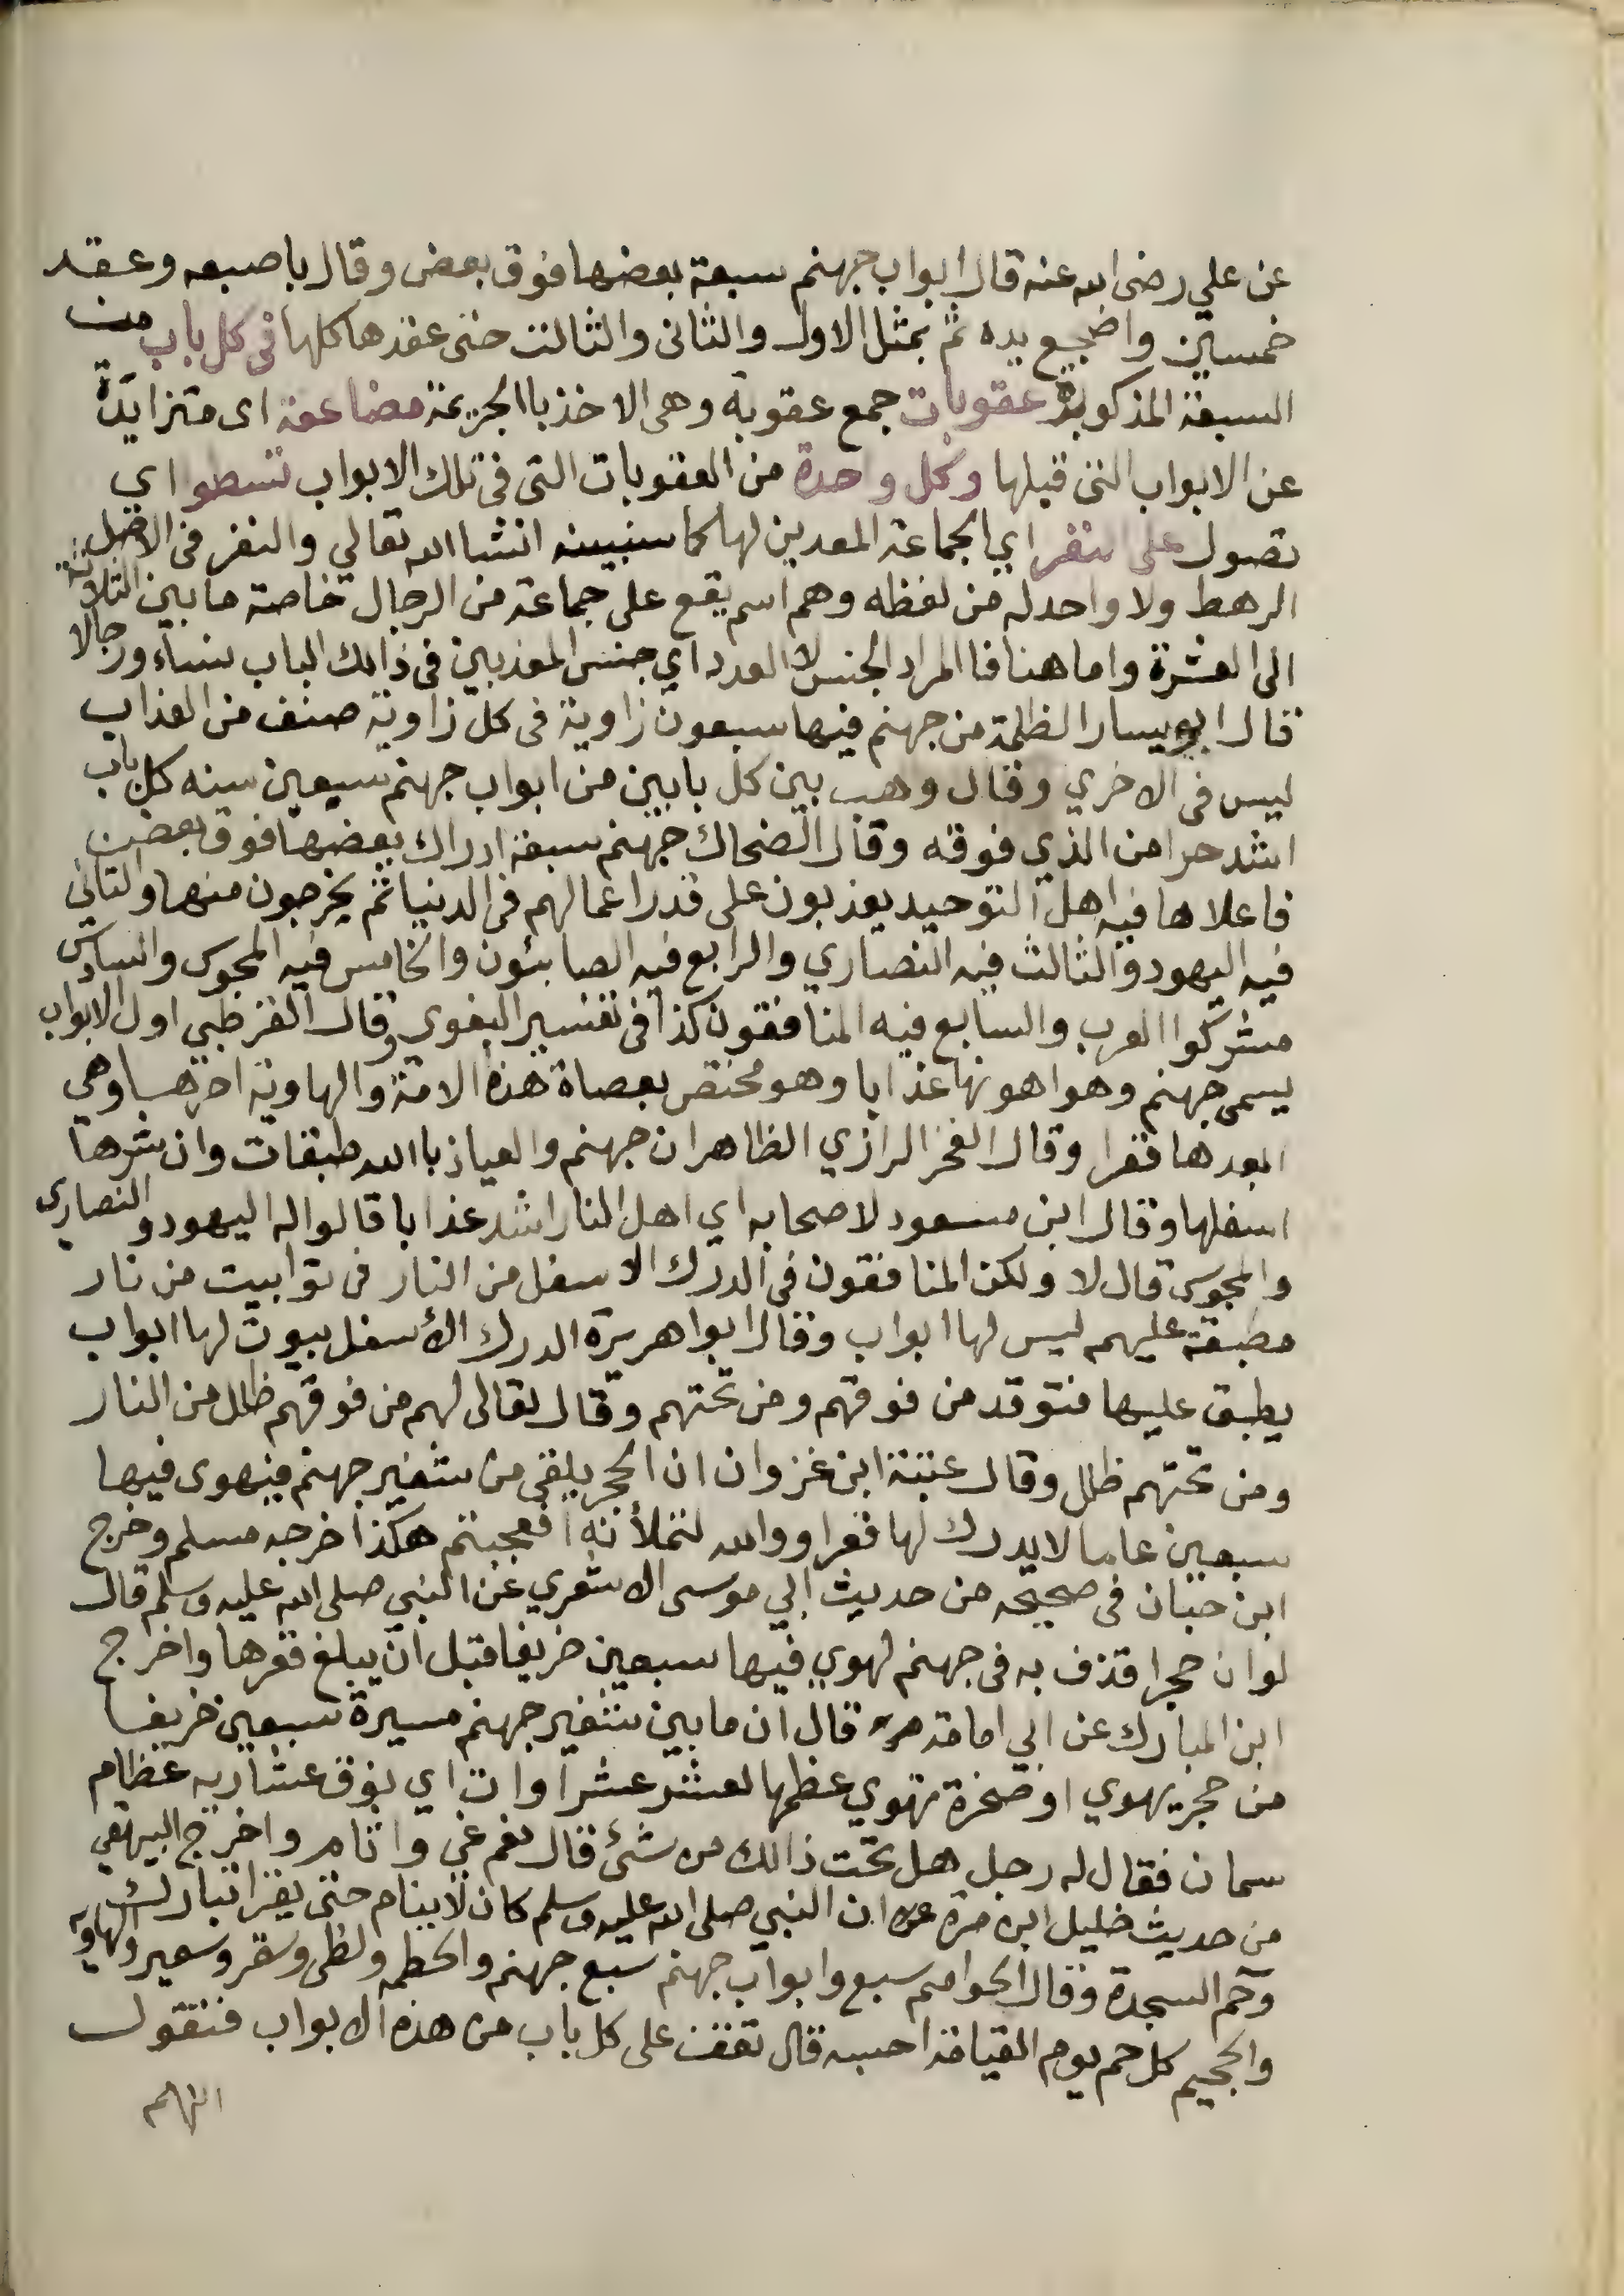 عن علي رضى الله عنه قال ابواب جهنم سبعة بعضها فوق بعض وقال باصبعه وعقد
خمسين واضجع يده ثم بمثل الاول والثانى والثالث حتى عقدها كلها فى كل باب من
السبعة المذكورة عقوبات جمع عقوبة وهى الاخذ باالجريمة مضاعفة اى متزايدة
عن الابواب التى قبلها وكل واحدة من العقوبات التى فى تلك الابواب تسطو اي
تصول على النفر اي الجماعة المعدين لها كما سنبينه انشا الله تعالي والنفر فى الاصل
الرهط ولا واحد له من لفظه وهم اسم يقع على جماعة من الرجال خاصة ما بين الثلاثة
الى العشرة واما هنا فا المراد الجنس لا العدد اي جنس المعذبين فى ذالك الباب نساء ورجالا
قال ابو يسار الظلمة من جهنم فيها سبعون زاوية فى كل زاوية صنف من العذاب
ليس فى الاخري وقال وهب بين كل بابين من ابواب جهنم سبعين سنه كل باب
اشد حرا من الذي فوقه وقال الضحاك جهنم سبعة ادراك بعضها فوق بعض
فاعلاها فيه اهل التوحيد يعذبون على قدر اعمالهم فى الدنيا ثم يخرجون منها والثانى
فيه اليهود والثالث فيه النصاري والرابع فيه الصابئون والخامس فيه المجوس والسادس
مشركوا العرب والسابع فيه المنافقون كذا فى تفسير البغوى وقال القرطبي اول الابواب
يسمى جهنم وهو اهونها عذابا وهو مختص بعصاة هذه الامة والهاوية اخرها وهي
ابعدها قعرا وقال الفخر الرازي الظاهر ان جهنم والعياذ باالله طبقات وان شرها
اسفلها وقال ابن مسعود لاصحابه اي اهل النار اشد عذابا قالوا له اليهود والنصارى
والمجوس قال لا ولكن المنافقون فى الدرك الاسفل من النار فى توابيت من نار
مطبقة عليهم ليس لها ابواب وقال ابوا هريرة الدرك الأسفل بيوت لها ابواب
يطبق عليها فتوقد من فوقهم ومن تحتهم وقال تعالى لهم من فوقهم ظلل من النار
ومن تحتهم ظلل وقال عتبة ابن غزوان ان الحجر يلقى من شفير جهنم فيهوى فيها
سبعين عاما لا يدرك لها قعرا ووالله لتملأنه افعجبتم هكذا اخرجه مسلم وخرج
ابن حبان فى صحيحه من حديث ابي موسى الاشعري عن النبي صلى الله عليه وسلم قال
لو ان حجرا قذف به فى جهنم لهوي فيها سبعين خريفا قبل ان يبلغ قعرها واخرج
ابن المبارك عن ابي امامة قال ان ما بين شفير جهنم مسيرة سبعين خريفا
من حجر يهوي او صخرة تهوي عظمها لعشر عشراوات اي نوق عشاريه عظام
سمان فقال له رجل هل تحت ذالك من شئ قال نعم غي واثام واخرج البيهقي
من حديث خليل ابن مرة ان النبي صلى الله عليه وسلم كان لا ينام حتى يقرا تبارك
وحم السجدة وقال الحواميم سبع وابواب جهنم سبع جهنم والحطمه ولظى وسقر وسعير والهاويه
والجحيم كل حم يوم القيامة احسبه قال تقف على كل باب من هذه الابواب فتقول
اللهم